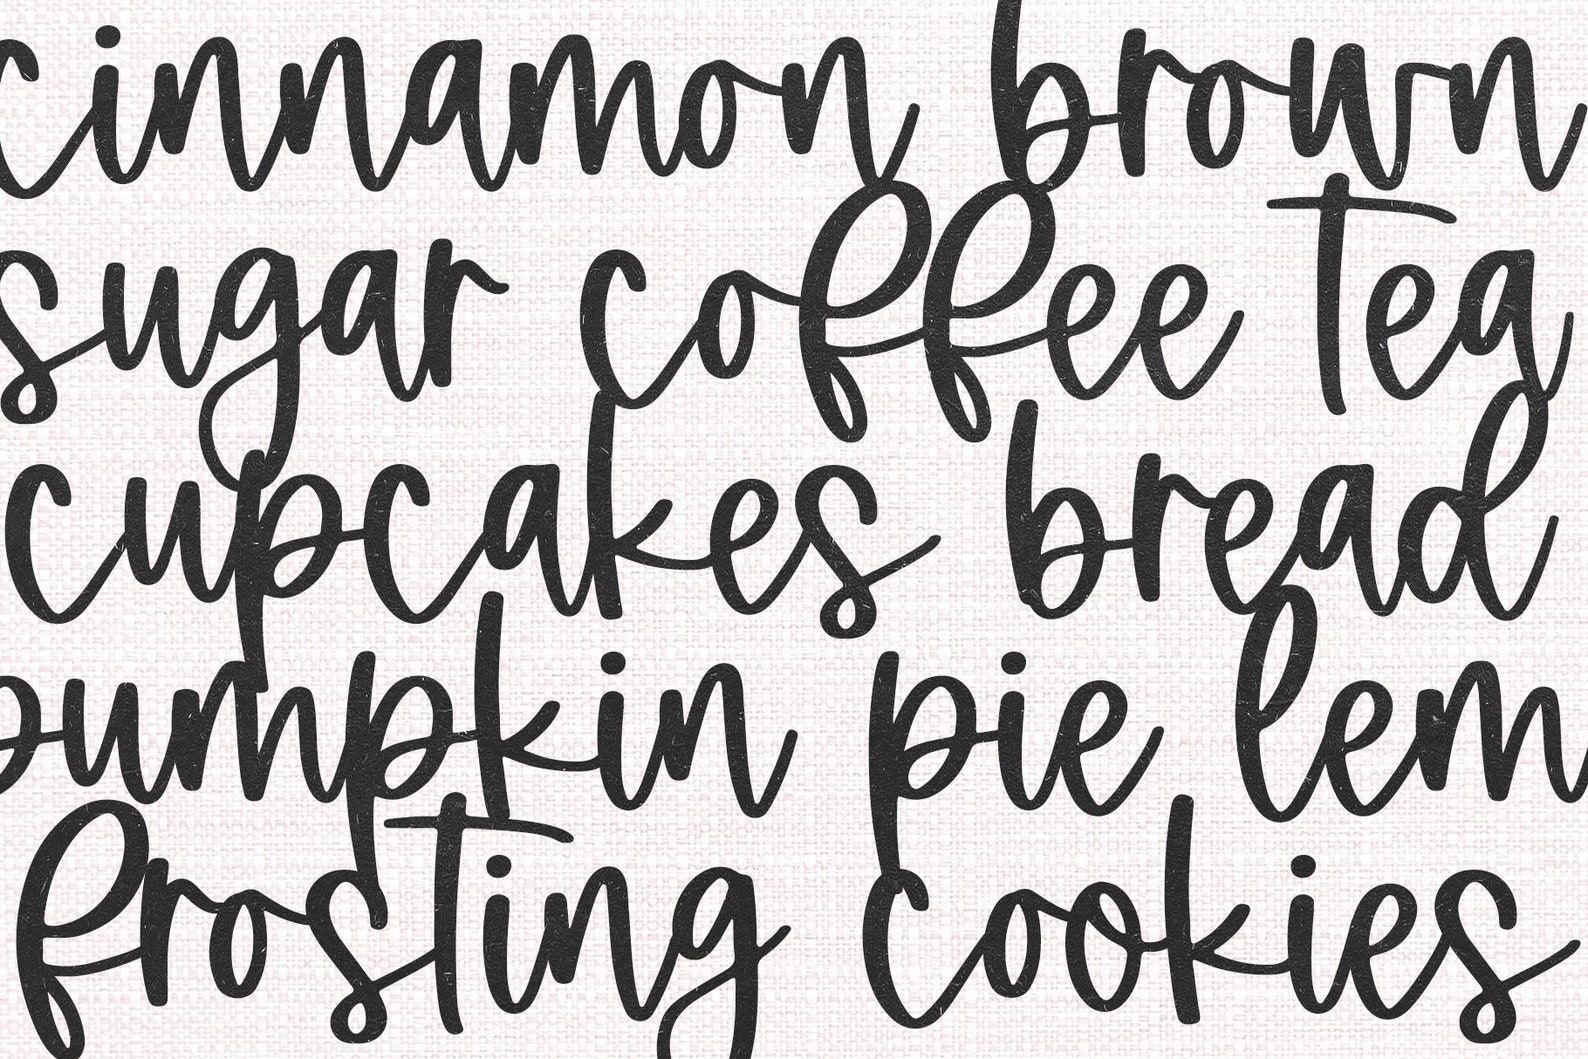 cinnamon brown
sugar coffee tea
cupcakes bread
pumpkin pie lem
frosting cookies